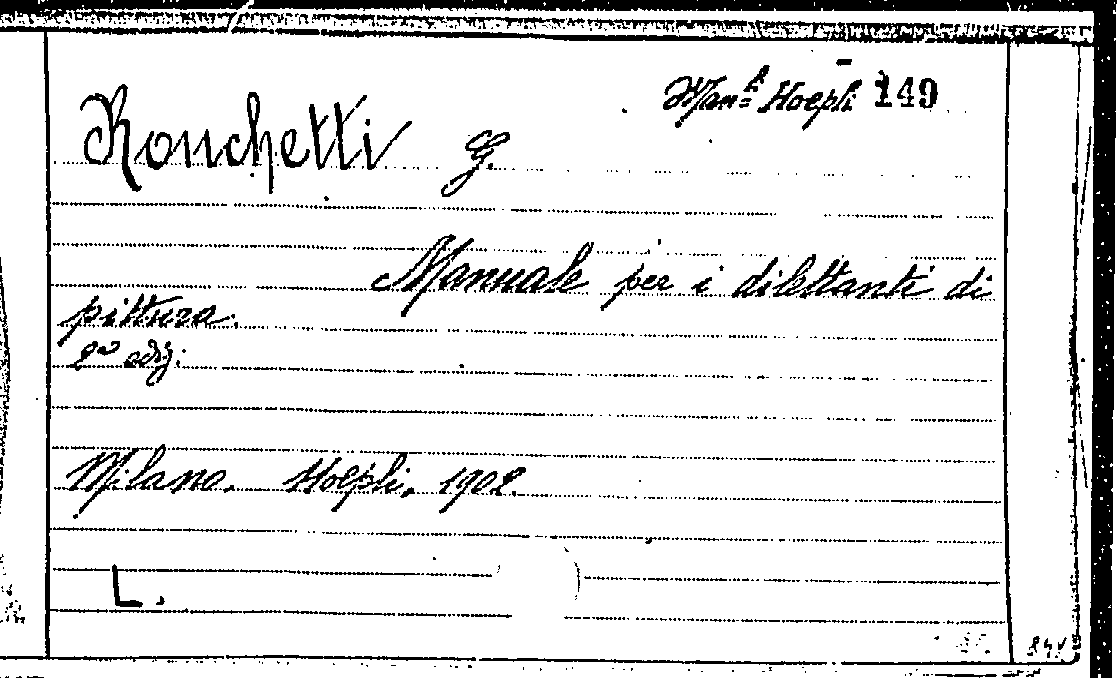 Man.li Hoepli 149
Ronchetti G.
Manuale per i dilettanti di
pittura.
2a ediz.
Milano. Hoepli, 1902.
L.